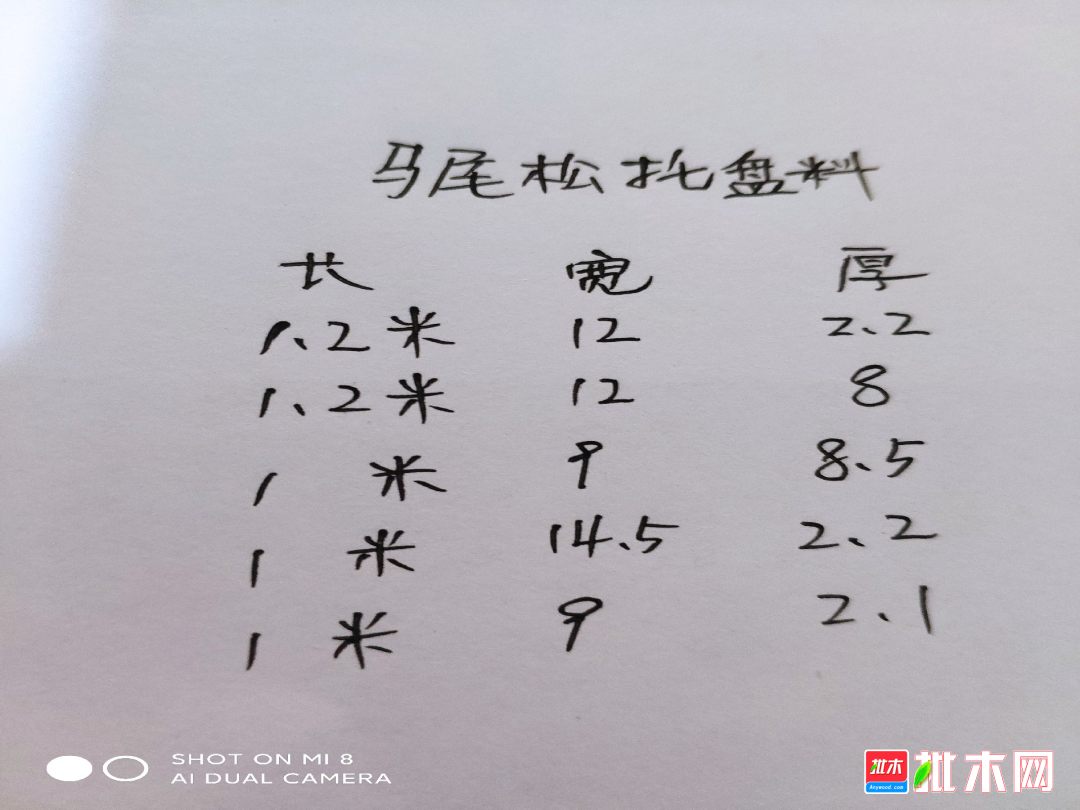 马尾松托盘料
长 宽 厚
1.2米 12 2.2
1.2米 12 8
1米 9 8.5
1米 14.5 2.2
1米 9 2.1
SHOT ON MI 8
AI DUAL CAMERA
批木 批木网
Anywood.com